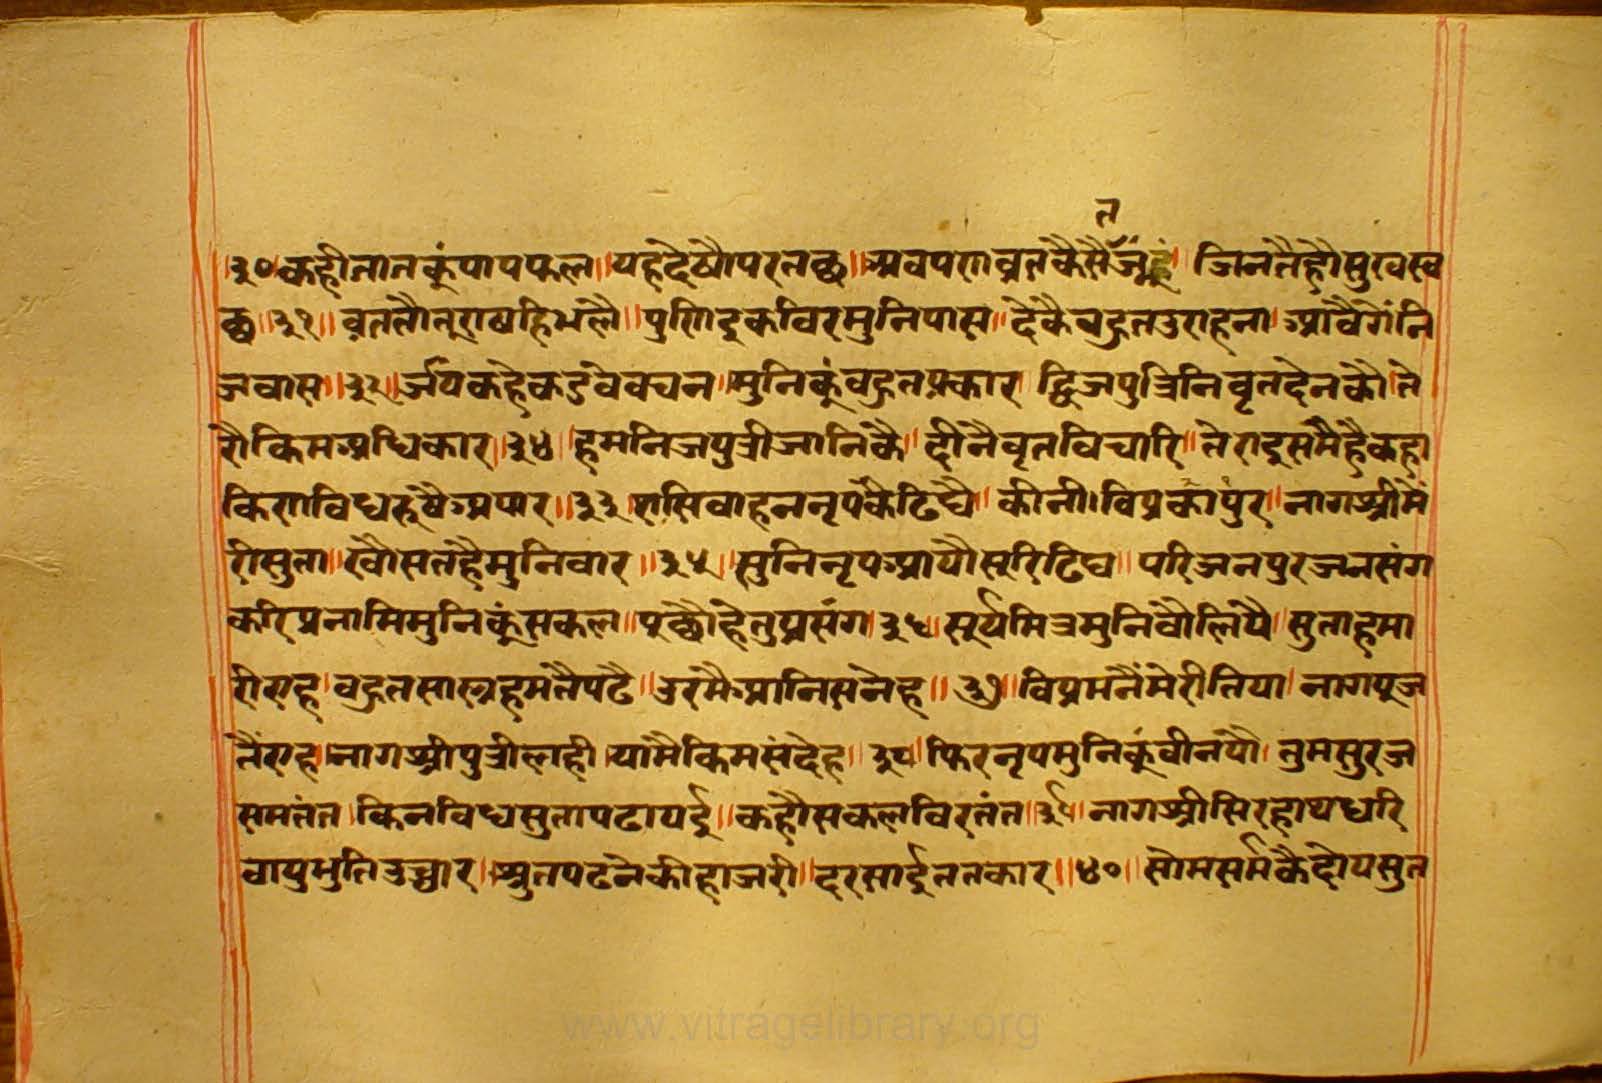 त
।३०।कहीतातकूंपापफल॥यहदेषौपरतछ॥अवपंणवृतकैसैंजूहूं।जिनतैहौसुखस्व
छ॥३१॥वृततौतूराषहिभलै॥पुणिदुकविरमुनिपास॥देकैबहुतउराहना।आवैगेंनि
जवास॥३२॥र्जयकहेकडवेवचन॥मुनिकूंवहुतप्रकार।द्विजपुत्रिनिवृतदेनकौ।ते
रौकिमअधिकार॥३४॥हमनिजपुत्रीजानिकै॥दीनैवृतविचारि॥तेरादुसमैहैकहा
किणविधभूषैअपार॥३३॥ससिवाहननृपकैटिघै॥कीनी।विप्रकापुर॥नागश्रीमे
रीसुता॥खौसतहैमुनिवार॥३५॥सुनिनृपआयौसूरिटिघ॥परिजनपुरजनसंग
करिप्रनामिमुनिकूंसकल॥पूछौहेतुप्रसंग॥३६॥सूर्यमित्रमुनिवौलियै॥सुताहमा
रीएह।वहुतसास्त्रहमतैपढै॥उरमैआनिसनेह॥३७॥विप्रमनैंमेरीतिया।नागपूज
तैंएह॥नागश्रीपुत्रीलही।यामैकिमसंदेह॥३८॥फिरनृपमुनिकूंवीनयौ।तुमसुरज
समतंत।किनविधसुतापढायई॥कहौसकलविरतंत॥३९॥नागश्रीसिरहाथधरि
वापुभुतिउच्चार।श्रुतपढनेकीहाजरी॥दरसाईततकार॥४०॥सोमसर्मकैदोयसुत
www.vitragelibrary.org